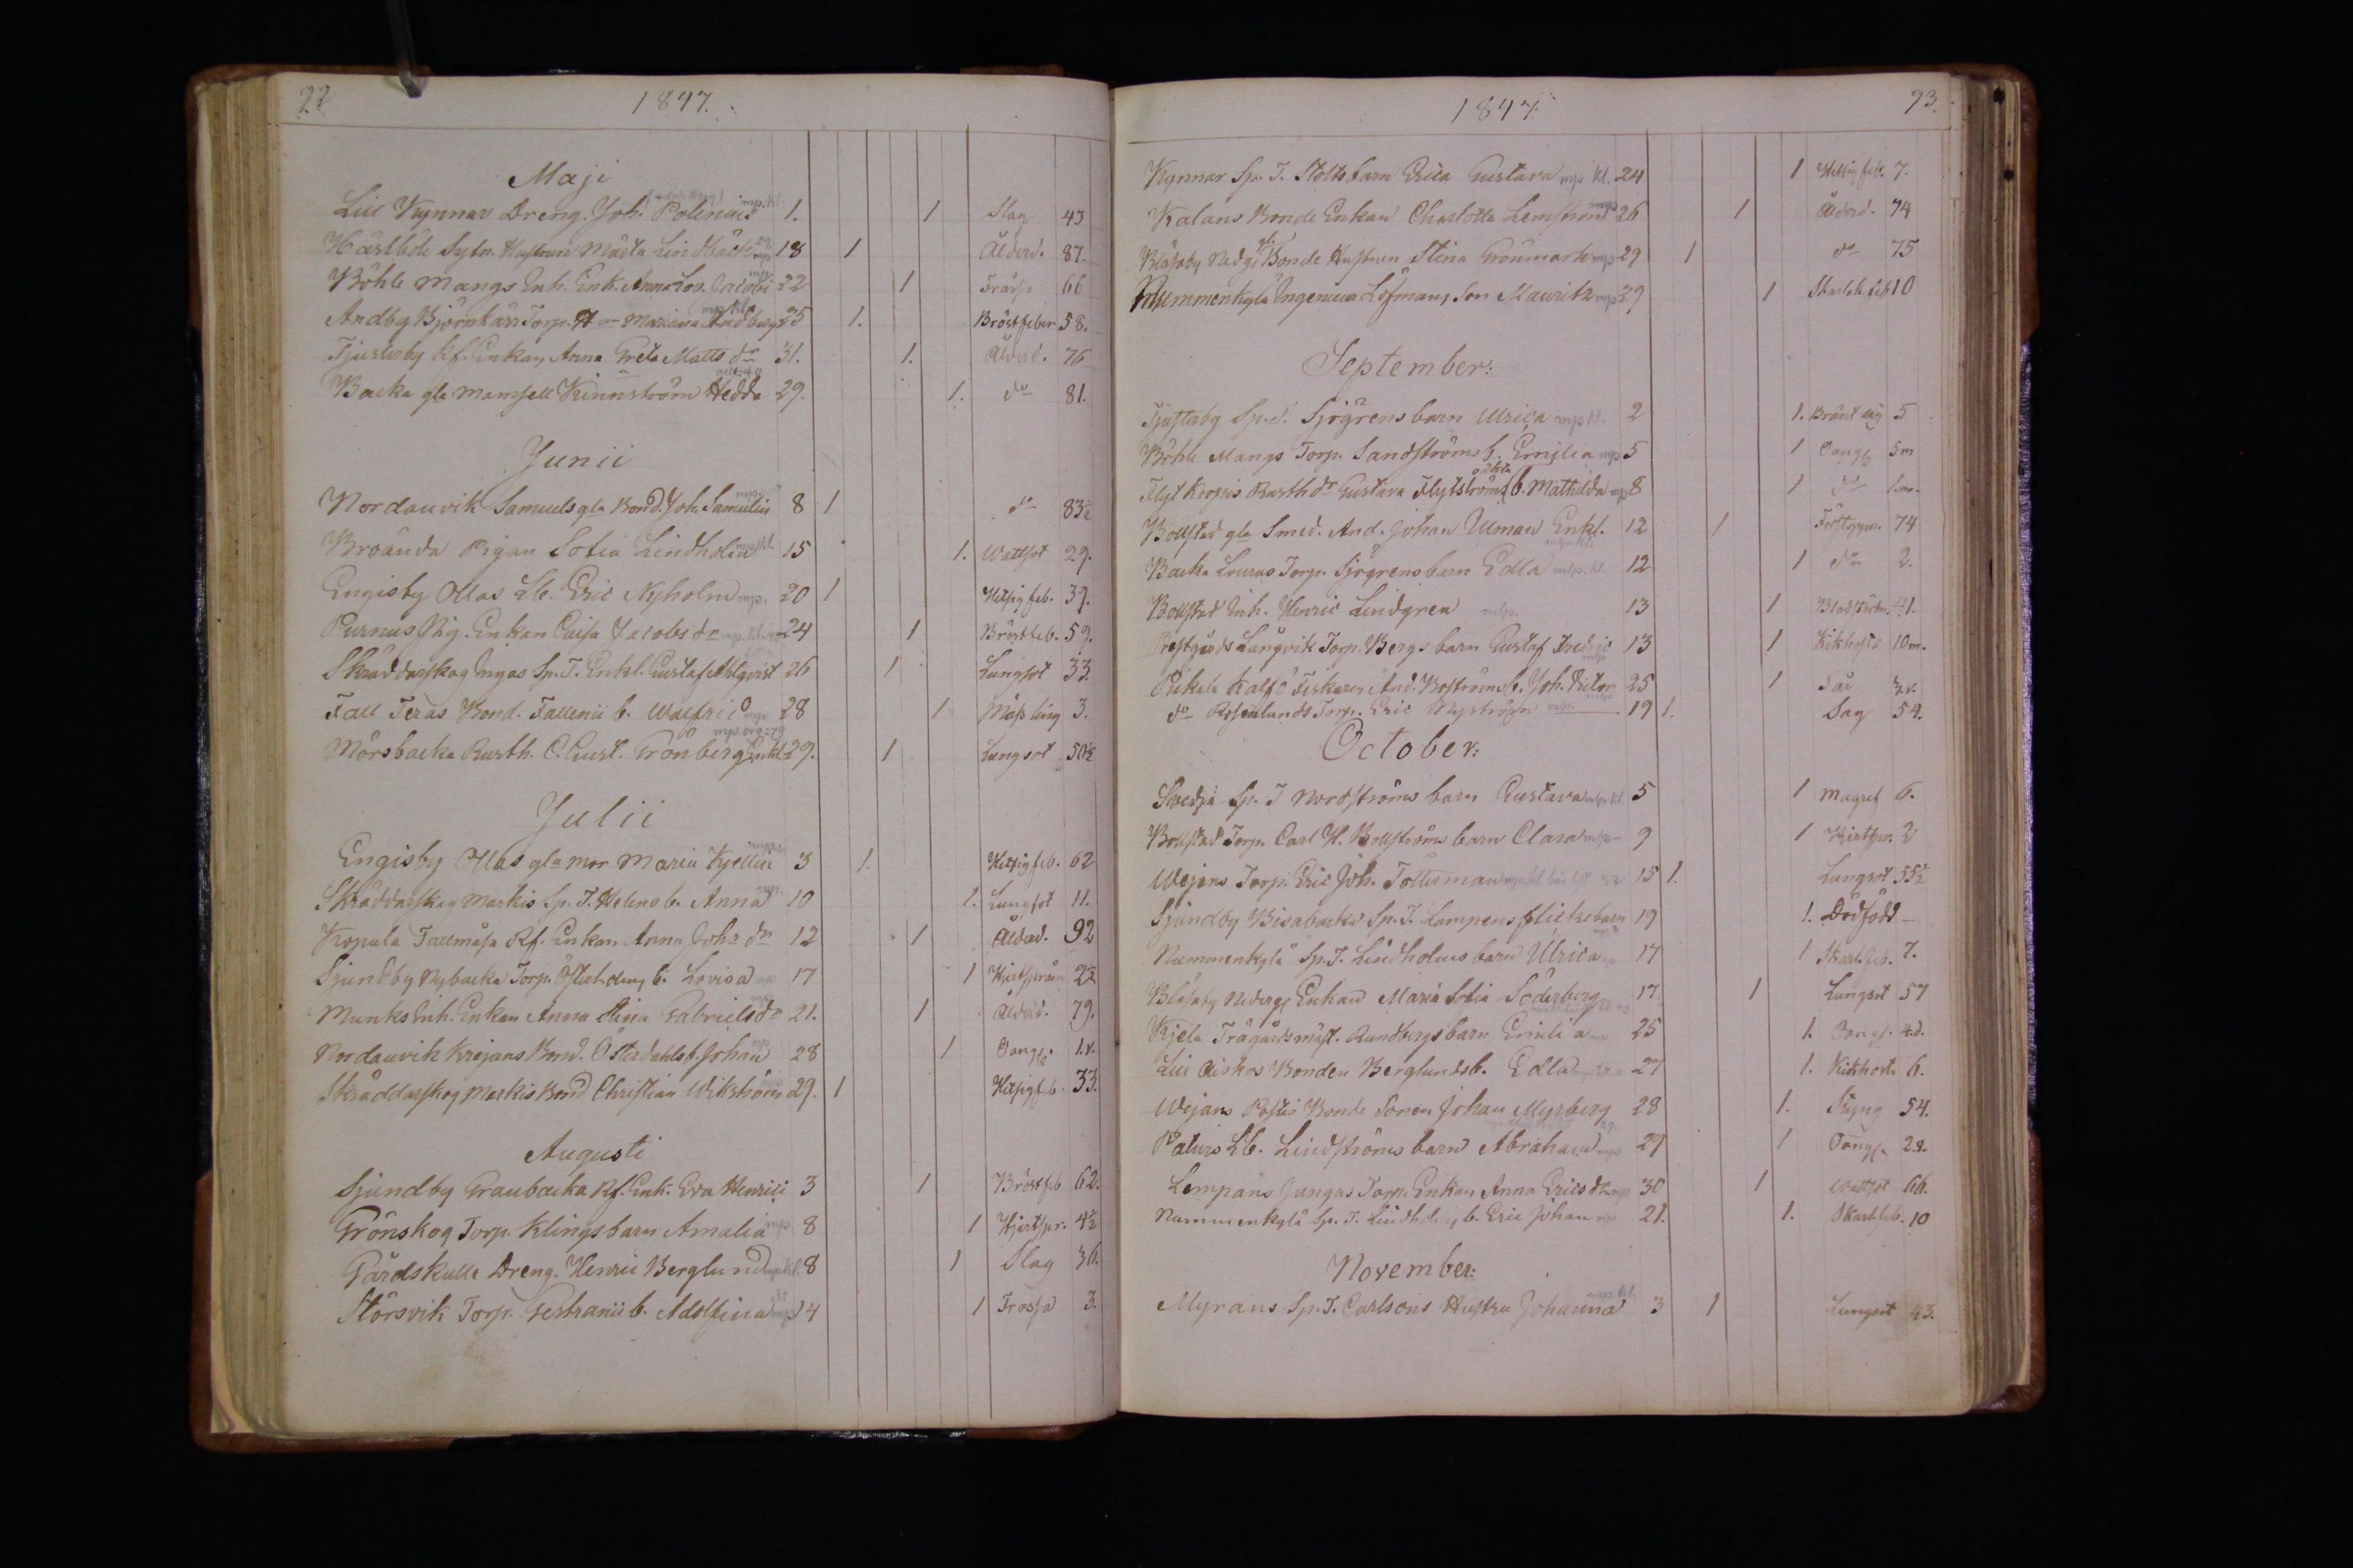 92
1847.
Maji
Lill Kynnar Dreng. Joh. Polenius 1. 1 Slag 43
Härlböle Sytn. Hustrun Maria Lindbäck 18 1 Ålderd. 87.
Böhle Mangs Inh. Enk. Anna Lov. Jacobi 22 1 66
Andby Björnkärr Torp. Mariana Andberg 25 1. Bröstfeber 58.
Tjusterby Rf. Enkan Anna Greta Matts dr 31. 1. Ålderd. 76
Backa gla Mamsell Kinnström Hedda 29. 1. do 81.
Junii
Nordanvik Samuels gla Bond. Joh. Samulin 8 1 do 83½
Broända Pigan Sofia Lindholm 15 1. Wattsot 29.
Engisby Ollas Lb. Eric Nyholm mp. 20 1 Hetsig feb. 39.
Purnus Nig. Enkan Caisa Jacobs dr 24 1 Bröstfeb. 59.
Skräddarskog Ingas Sp. T. Enkl. Gustaf Ahlqvist 26 1 Lungsot 33.
Fall Teras Bond. Fallenii b. Walfrid 28 1 Mässling 3.
Mörsbacka Rusth. C. Gust. Grönberg Enkl. 29. 1 Lungsot 50½
Julii
Engisby Ollas gla mor Maria Kjellin 3 1. Hetsig feb. 62
Skräddarskog Markis Sp. T. Helens b. Anna 10 1. Lungsot 11.
Kopula Tallmåsa Rf. Enkan Anna Johs dr 12 1 Ålderd. 92
Sjundby Nybacka Torp. Österholms b. Lovisa 17 1 Hjertsprång 2½
Munks Inh. Enkan Anna Stina Gabriels dr 21. 1 Ålderd. 79.
Nordanvik Krejans Bond. Österdahls b. Johan 28 1 1.v.
Skräddarskog Markis Bond Christian Wikström 29. 1 Hetsig feb. 33.
Augusti
Sjundby Graubacka Rf. Enk. Eva Henrici 3 1 Bröstfeb 62.
Grönskog Torp. Klings barn Amalia 8 1 Hjertspr. 4½
Gårdskulla Dreng. Henric Berglund 8 1 Slag 36.
Störsvik Torp. b. Adolfina 14 1 Frossa 3.
1847.
93.
Kynnar Sp. T. Stolts barn Erica Gustava mp kl. 24 1 Hetsig feb. 7.
Kalans Bonde Enkan Charlotta Lemström 26 1 Ålderd. 74
Blåsaby Nedg. Bonde Hustrun Stina Grönmark mp 29 1 do 75
Nummenkylä Ingenieur Löfmans Son Mauritz mp 29 1 Skarlak. feb 10
September:
Tjusterby Sp. T. Sjögrens barn Ulrica mp kl. 2 1. Bränt sig 5
Böhle Mangs Torp. Sandströms b. Emilia mp 5 1 5m
Flyt Krogis Rusth dr Gustava Flytströms b. Mathilda mp 8 1 do 1.m.
Bollstad gla Smed. And. Johan Ulman Enkl. 12 1 74
Backa Louras Torp. Sjögrens barn Edla mp. kl. 12 1 do 2.
Bollstad Inh. Henric Lindgren mp. 13 1 Blodstörtn. 41.
Prestgårds Långvik Torp. Bergs barn Gustaf Fredric 13 1 Kikhosta 10m.
Pickala Kalfö Fiskaren And. Boströms b. Joh. Victor 25 1 3.v.
do Rosenlunds Torp. Eric Nyström mp. 19 1. 54.
October:
Svedja Sp. T Nordströms barn Gustava mp. kl 5 1 Magref 6.
Bollstad Torp. Carl H. Bollströms barn Clara mp 9 1 Hjertspr. 2
Wejans Torp. Eric Joh. Totterman 15 1. Lungsot 55½
Sjundby Bisabacka Sp. T. Lampens flickebarn 19 1. Dödfödd
Nummenkylä Sp. T. Lindholms barn Ulrica 17 1 Skarl. feb. 7.
Blåsaby Nedergs Enkan Maria Sofia Söderberg 17 1 Lungsot 57
Kjela Trägårdsmäst. Rundbergs barn Emilia 25 1. 4.d.
Lill Ciskos Bonden Berglunds b. Edla 27 1. Kikhosta 6.
Wejans Postis Bonde Sonen Johan Myrberg 28 1. Styng 54.
Paturs Lb. Lindströms barn Abraham 29 1
Lempans Jungas Torp. Enkan Anna Erics dr mp 30 1 Wattsot 66.
Nummenkylä Sp. T. Lindholms b. Eric Johan 21. 1. Skarl. feb. 10
November:
Myrans Sp. T. Carlsons Hustru Johanna 3 1 Lungsot 43.